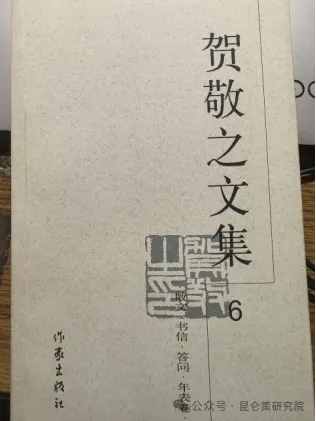 贺敬之文集
6
散文·书信·答问·年表卷
作家出版社
公众号·昆仑策研究院